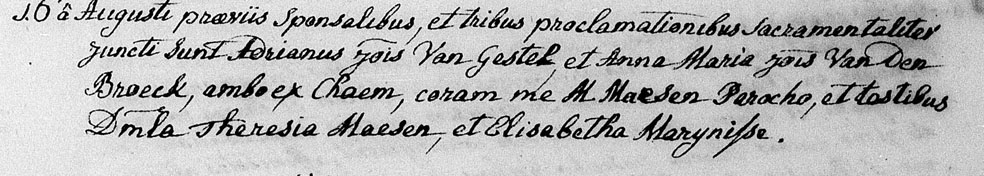 16â Augusti præviis Sponsalibus, et tribus proclamationibus Sacramentaliter
juncti Sunt Adrianus jois Van Gestel, et Anna Maria jois Van Den
Broeck, ambo ex Chaem, coram me M Maesen Parocho, et tostibus
Dmla Theresia Maesen, et Elisabetha Marynisse.